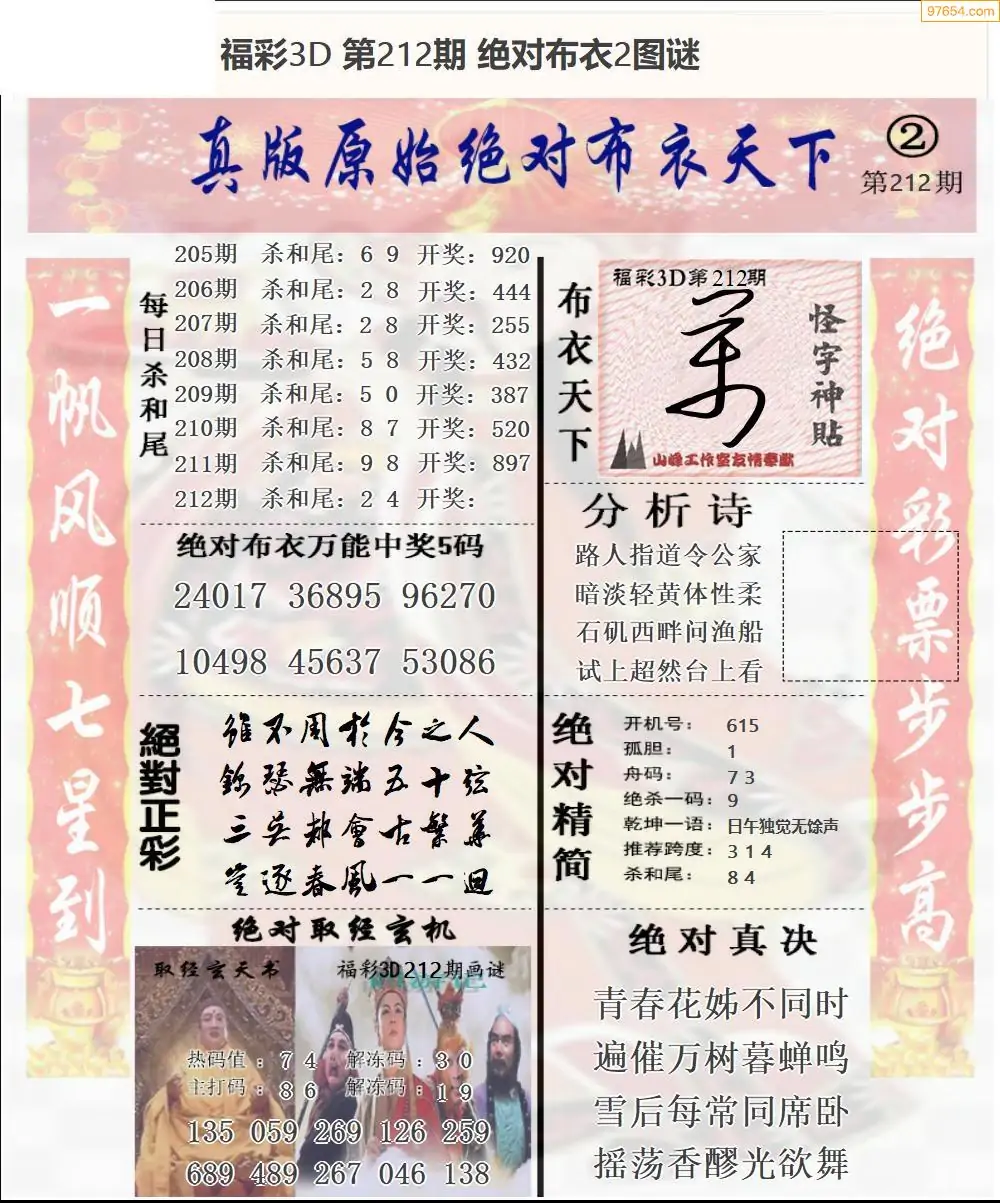 97654.com
福彩3D 第212期 绝对布衣2图谜
真版原始绝对布衣天下
②
第212期
一帆风顺七星到
每日杀和尾
205期 杀和尾：6 9 开奖：920
206期 杀和尾：2 8 开奖：444
207期 杀和尾：2 8 开奖：255
208期 杀和尾：5 8 开奖：432
209期 杀和尾：5 0 开奖：387
210期 杀和尾：8 7 开奖：520
211期 杀和尾：9 8 开奖：897
212期 杀和尾：2 4 开奖：
布衣天下
福彩3D第212期
怪字神貼
山峰工作室友情奉献
绝对彩票步步高
绝对布衣万能中奖5码
24017 36895 96270
10498 45637 53086
分析诗
路人指道令公家
暗淡轻黄体性柔
石矶西畔问渔船
试上超然台上看
絕對正彩
雖不周於今之人
錦瑟無端五十弦
三吳都會古繁華
豈逐春風一一迴
绝对精简
开机号： 615
孤胆： 1
舟码： 7 3
绝杀一码：9
乾坤一语：日午独觉无馀声
推荐跨度：3 1 4
杀和尾： 8 4
绝对取经玄机
取经玄天书
福彩3D212期画谜
热码值：7 4 解冻码：3 0
主打码：8 6 解冻码：1 9
135 059 269 126 259
689 489 267 046 138
绝对真决
青春花姊不同时
遍催万树暮蝉鸣
雪后每常同席卧
摇荡香醪光欲舞